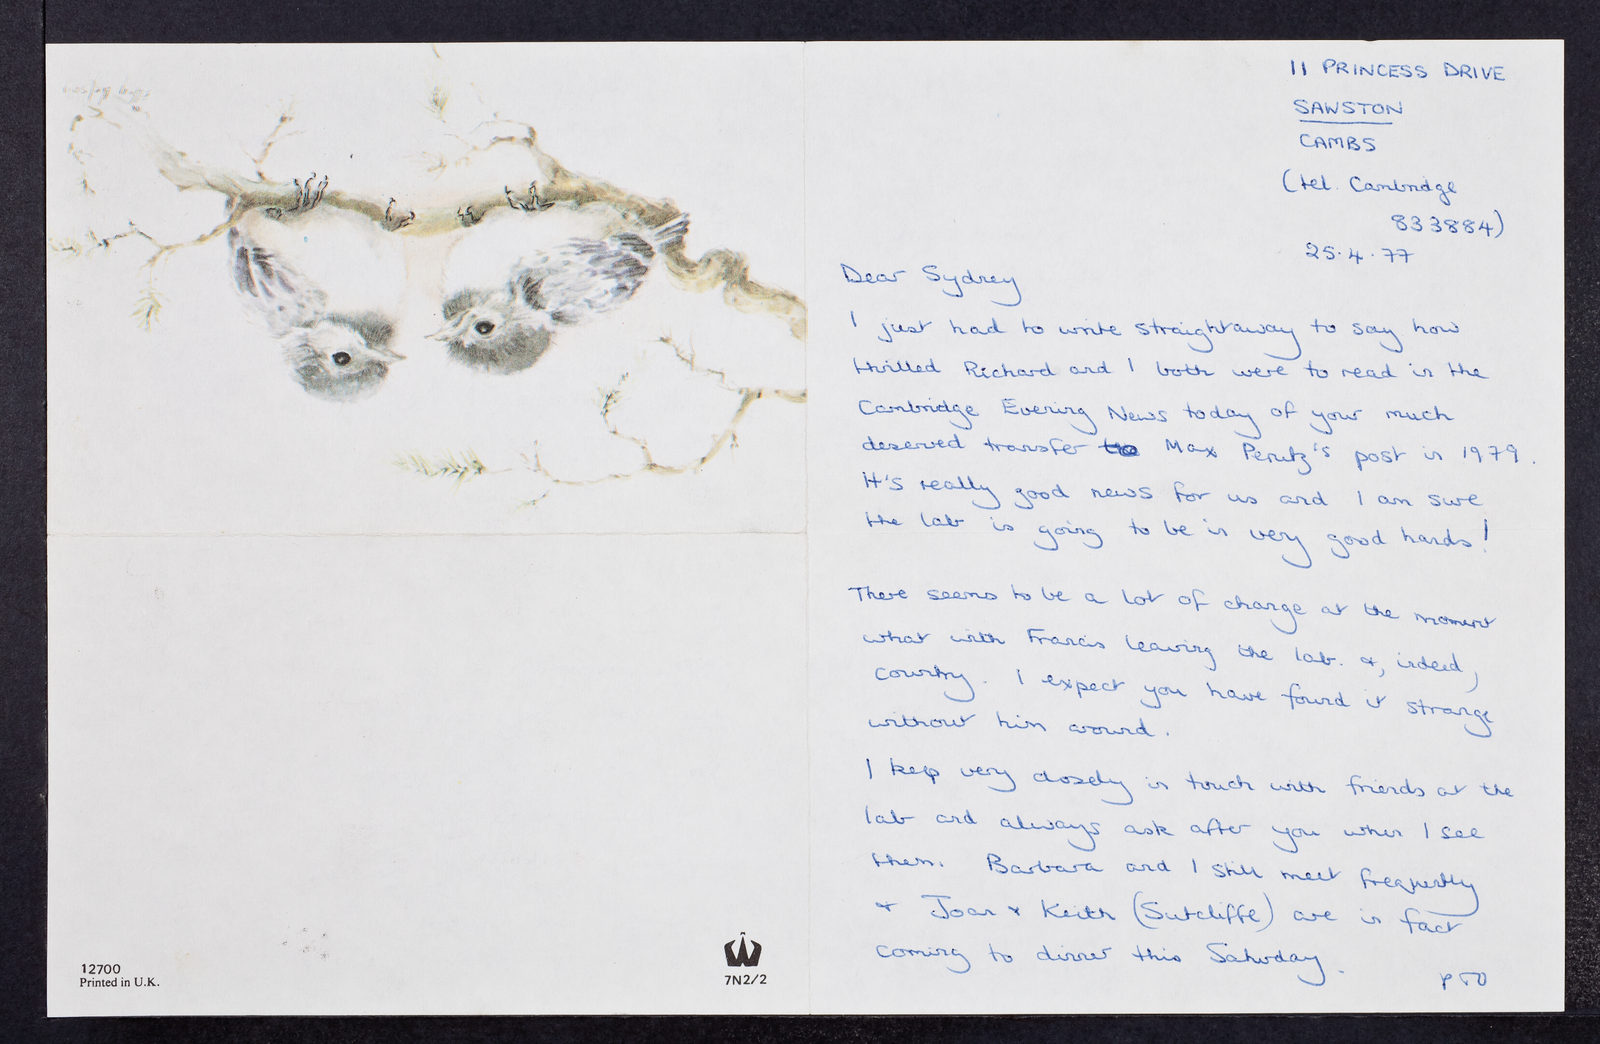 11 PRINCESS DRIVE
SAWSTON
CAMBS
(tel. Cambridge
833884)
25.4.77
Dear Sydney
I just had to write straightaway to say how
thrilled Richard and I both were to read in the
Cambridge Evening News today of your much
deserved transfer to Max Perutz's post in 1979.
It's really good news for us and I am sure
the lab is going to be in very good hands!
There seems to be a lot of change at the moment
what with Francis leaving the lab. &, indeed,
country. I expect you have found it strange
without him around.
I keep very closely in touch with friends at the
lab and always ask after you when I see
them. Barbara and I still meet frequently
& Joan & Keith (Sutcliffe) are in fact
coming to dinner this Saturday.
PTO
12700
Printed in U.K.
7N2/2